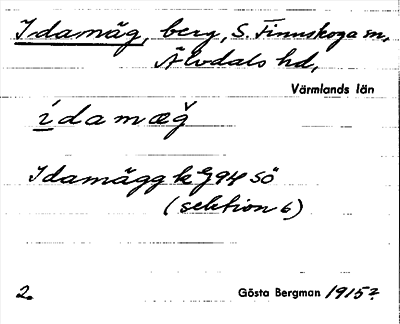 Idamäg, berg, S. Finnskoga sn,
Älvdals hd,
Värmlands län
ídamæǧ
Idamägg k G 94 SÖ
(sektion 6)
2. Gösta Bergman 1915?